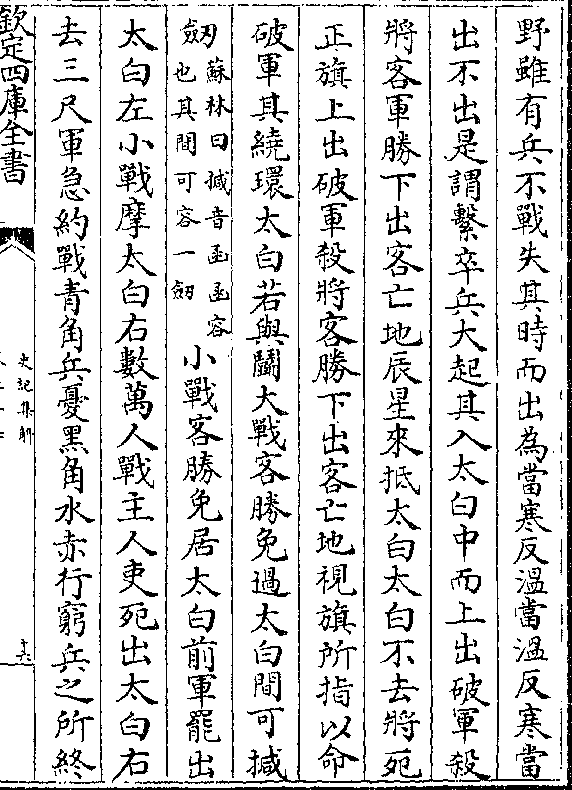 野雖有兵不戰失其時而出為當寒反溫當溫反寒當
出不出是謂擊卒兵大起其入太白中而上出破軍殺
將客軍勝下出客亡地辰星來抵太白太白不去將死
正旗上出破軍殺將客勝下出客亡地視旗所指以命
破軍其繞環太白若與鬭大戰客勝免過太白間可椷
劒蘇林曰椷音函函容
也其間可容一劒
小戰客勝免居太白前軍罷出
太白左小戰摩太白右數萬人戰主人吏死出太白右
去三尺軍急約戰青角兵憂黑角水赤行窮兵之所終
欽定四庫全書
史記集解